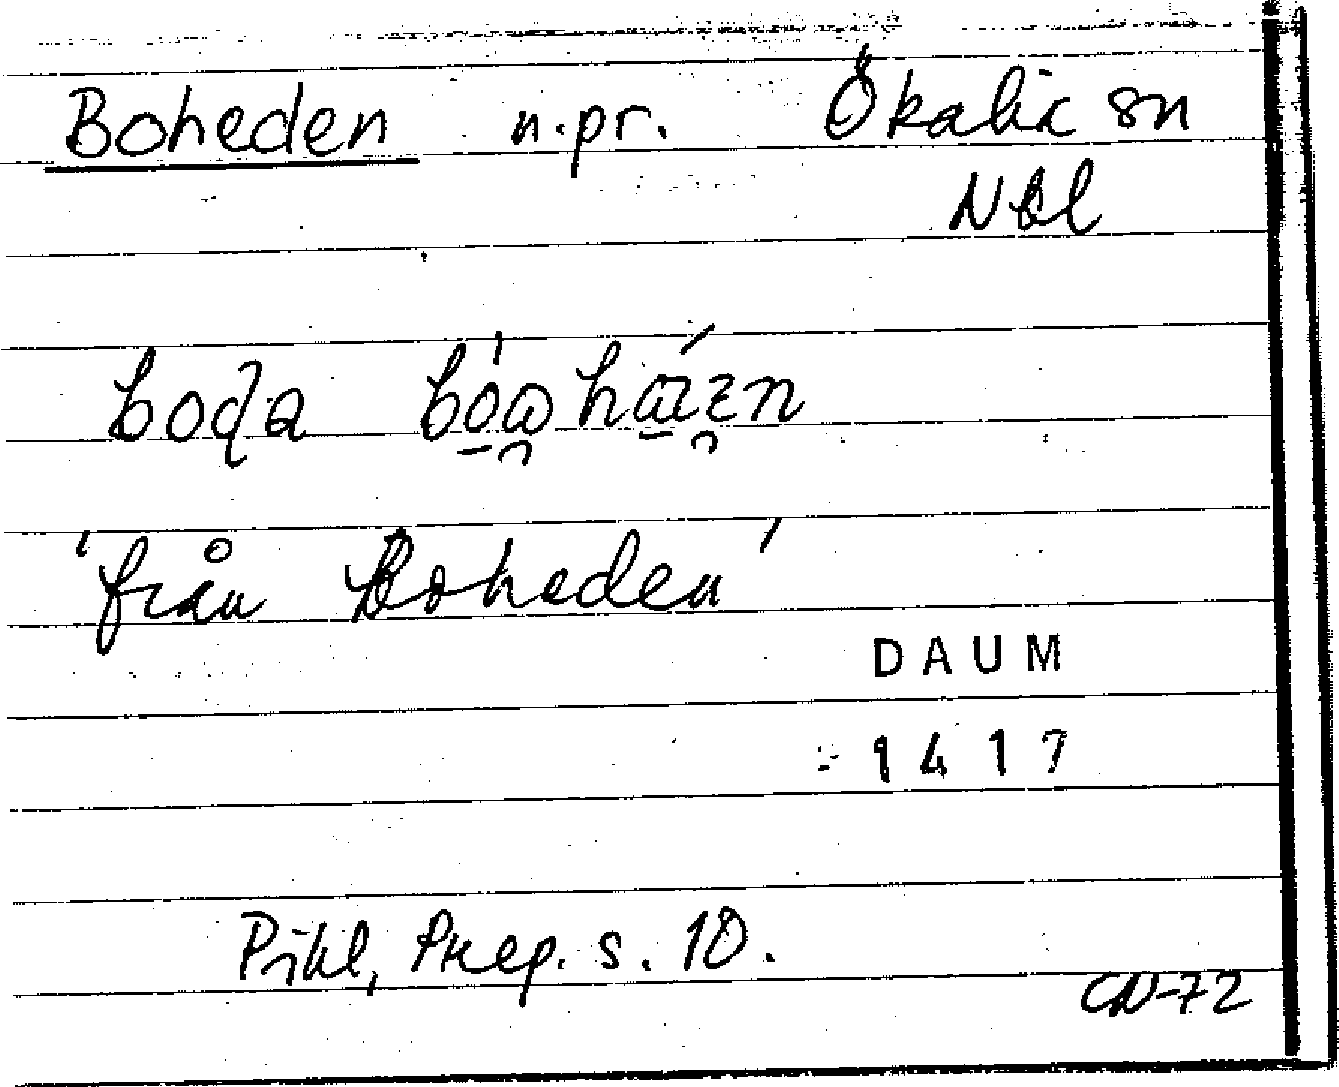 Boheden n.pr. Ökalix sn
Nbl
boda bóωhæ̲ɪ́ɛn
'från Boheden'
DAUM
1417
Pihl, Prep. s. 10.
CN-72